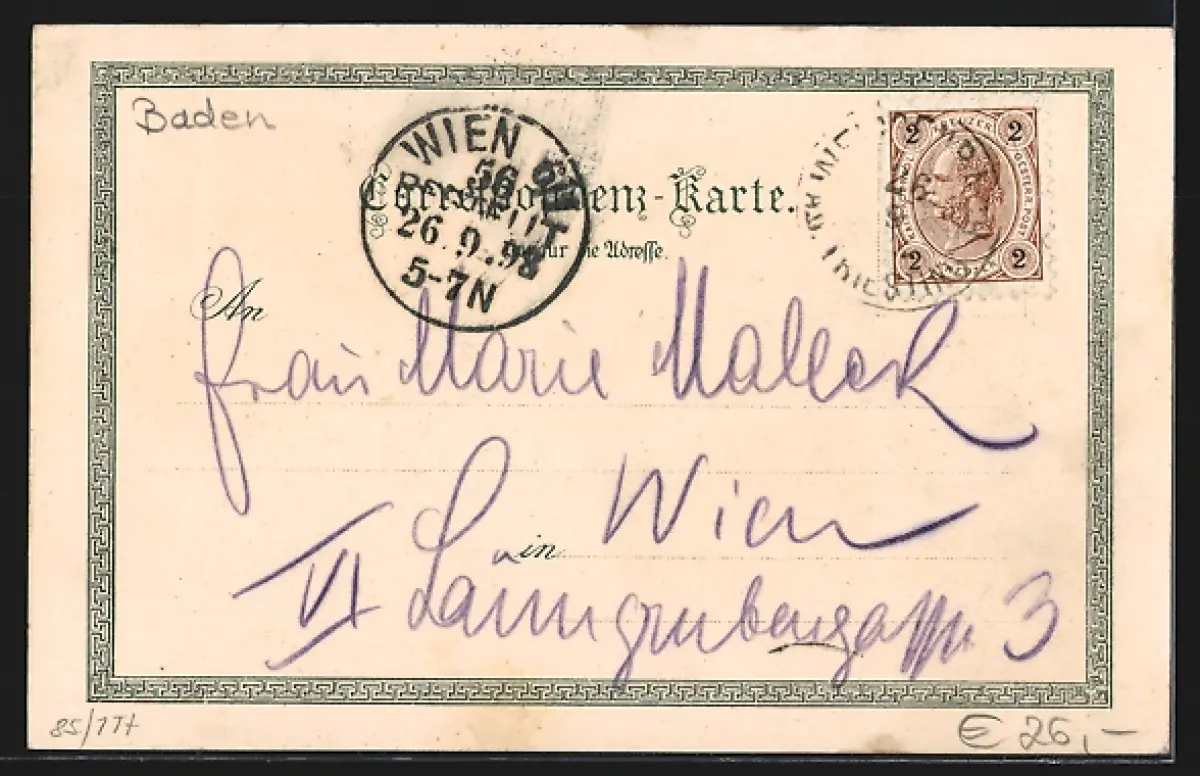 Baden
WIEN
56
BESTELLT
26.9.98
5-7N
Correspondenz-Karte.
Nur für die Adresse.
2 KREUZER 2
OESTERR. POST
2 2
TRIEST
An
Frau Marie Maleck
in Wien
VI Laimgrubengasse 3
85/177
€ 26,-